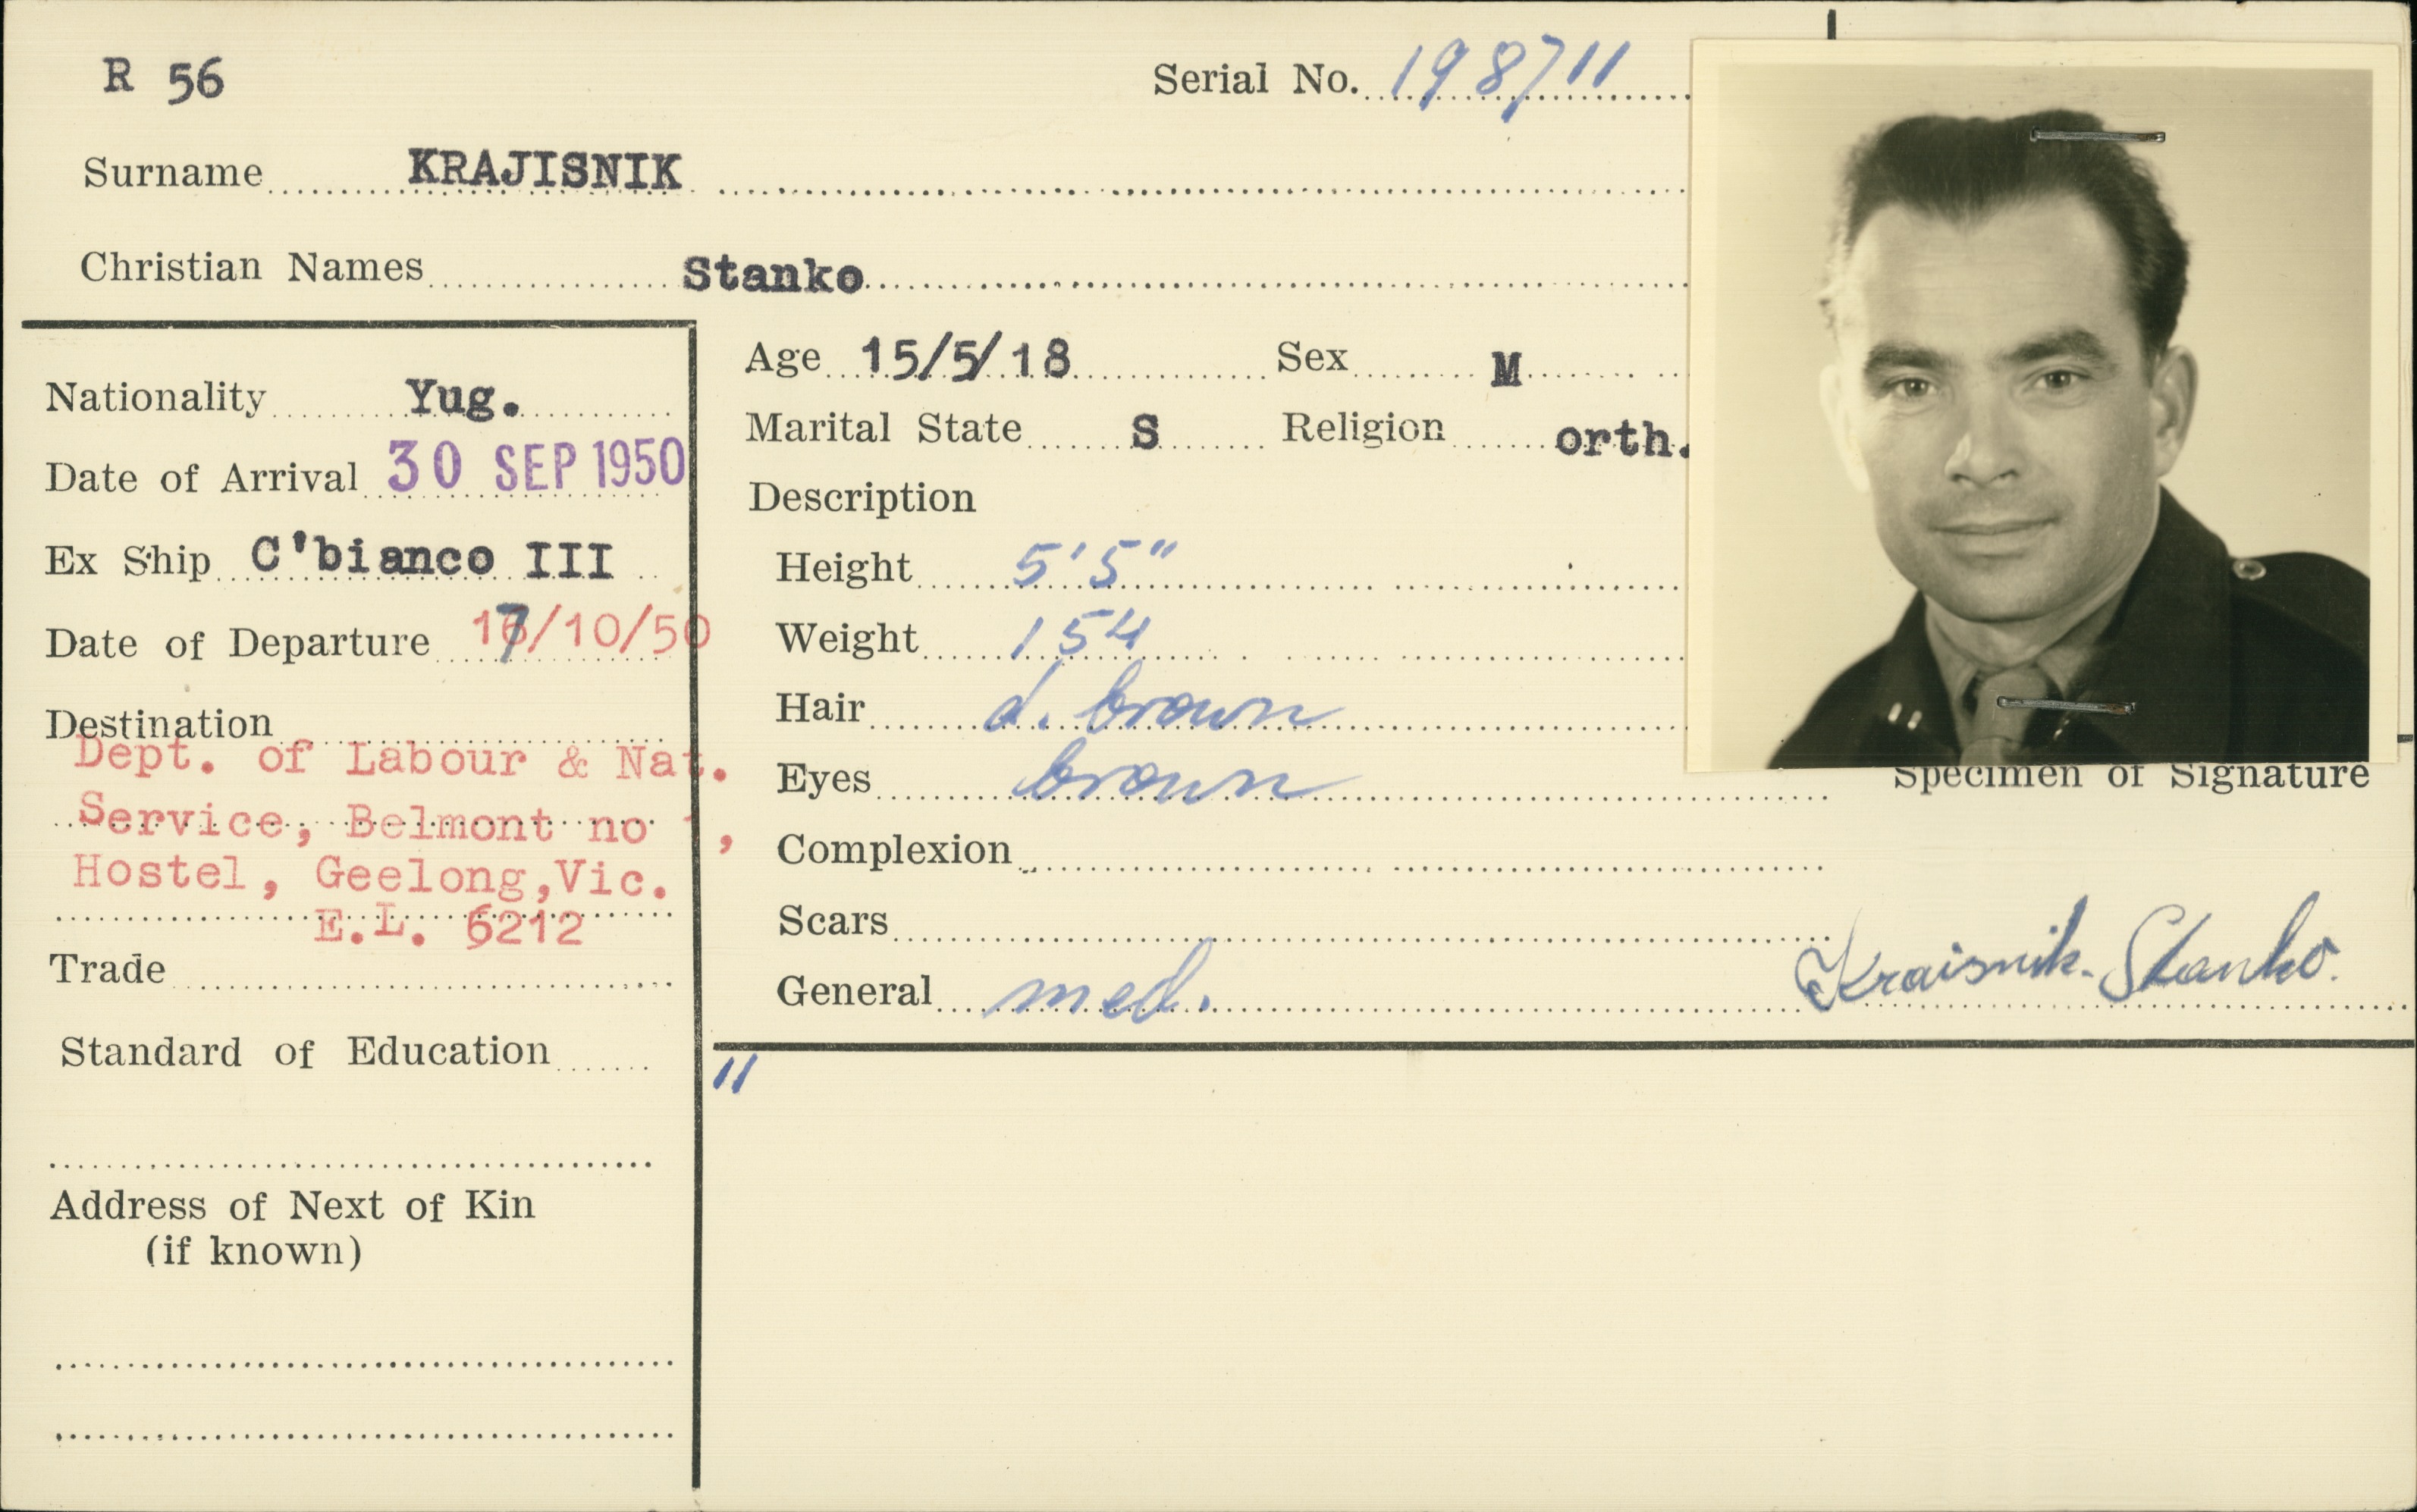 R 56
Serial No. 198711
Surname KRAJISNIK
Christian Names Stanko
Nationality Yug.
Date of Arrival 30 SEP 1950
Ex Ship C'bianco III
Date of Departure 17/10/50
Destination
Dept. of Labour & Nat.
Service, Belmont no ,
Hostel, Geelong,Vic.
E.L. 6212
Trade
Standard of Education
Address of Next of Kin
(if known)
Age 15/5/18 Sex M
Marital State S Religion orth.
Description
Height 5'5"
Weight 154
Hair d. brown
Eyes brown
Complexion
Scars
General med.
Specimen of Signature
Kraisnik-Stanko.
11